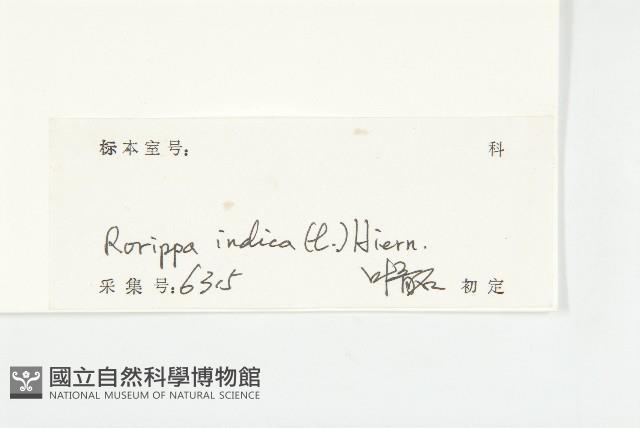 标本室号： 科
Rorippa indica (L.) Hiern.
采集号：6315 初定
國立自然科學博物館
NATIONAL MUSEUM OF NATURAL SCIENCE